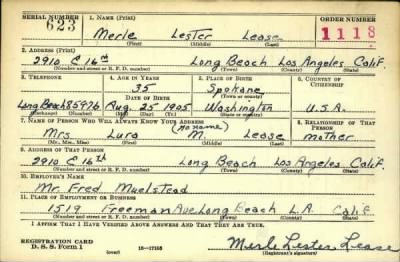 SERIAL NUMBER 1. NAME (Print) ORDER NUMBER
623 Merle Lester Lease 1118
(First) (Middle) (Last)
2. ADDRESS (Print)
2910 E 16th Long Beach Los Angeles Calif.
(Number and street or R. F. D. number) (Town) (County) (State)
3. TELEPHONE 4. AGE IN YEARS 5. PLACE OF BIRTH 6. COUNTRY OF CITIZENSHIP
35 Spokane
DATE OF BIRTH (Town or county)
Long Beach 85976 Aug. 25 1905 Washington U.S.A.
(Exchange) (Number) (Mo.) (Day) (Yr.) (State or country)
7. NAME OF PERSON WHO WILL ALWAYS KNOW YOUR ADDRESS 8. RELATIONSHIP OF THAT PERSON
(No name)
Mrs Lura M. Lease mother
(Mr., Mrs., Miss) (First) (Middle) (Last)
9. ADDRESS OF THAT PERSON
2910 E 16th Long Beach Los Angeles Calif.
(Number and street or R. F. D. number) (Town) (County) (State)
10. EMPLOYER'S NAME
Mr. Fred Muelstead
11. PLACE OF EMPLOYMENT OR BUSINESS
1519 Freeman Ave Long Beach L.A. Calif
(Number and street or R. F. D. number) (Town) (County) (State)
I AFFIRM THAT I HAVE VERIFIED ABOVE ANSWERS AND THAT THEY ARE TRUE.
REGISTRATION CARD
D. S. S. Form 1 (over) 16—17105 Merle Lester Lease
(Registrant's signature)